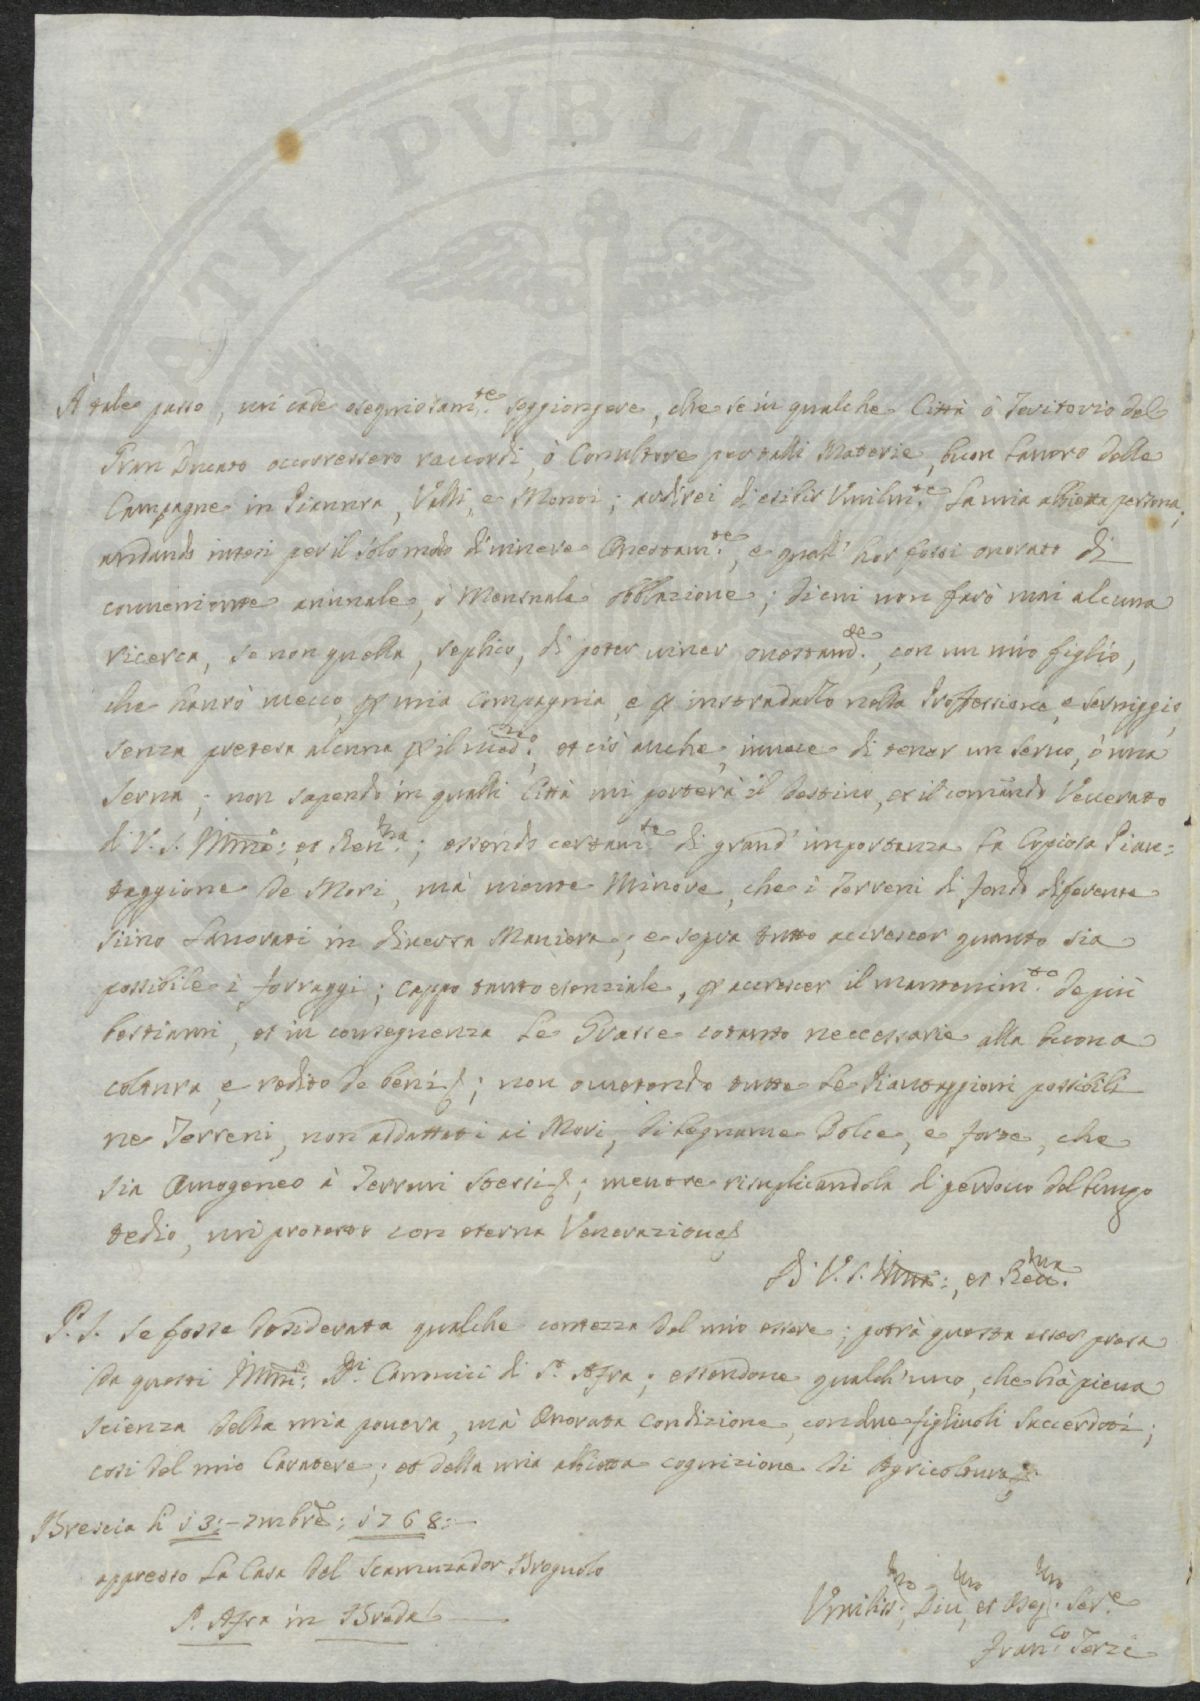 PUBLICAE
À tale passo, mi cade osequiosam.te soggiongere, che se in qualche Città ò Teritorio del
Gran Ducato occorressero raccordi, ò Consultore per talli Materie, buon Lavoro delle
Campagne in Piannra, Valli, e Monti; ardirei di esibir Vmilm.te La mia abbietta persona;
andando intesi per il solo modo di vivere Onestam.te, e quall' hor fossi onorato di
conveniente annuale, ò Mensuale Obblazione; di cui non farò mai alcuna
ricerca, se non quella, replico, di poter viver onestam.te, con un mio figlio,
che haurò meco, p mia Compagnia, e p instradarlo nella Proffessione, e Serviggio,
senza pretesa alcuna p il med.mo, et ciò anche, invece di tener un Servo, ò una
Serva; non sapendo in qualli Città mi porterà il destino, et il comando Venerato
di V. S. Illma: et Reu.ma; essendo certam.te di grand' importanza La Copiosa Pian=
taggione de Mori, mà niente Minore, che i Terreni di fondo diferente
siino Lavorati in diversa Maniera; e sopra tutto accrescer quanto sia
possibile i forraggi; cappo tanto esenziale, p accrescer il mantenim.to de più
bestiami, et in conseguenza Le Grasse cotanto neccessarie alla buona
coltura, e redito de beni; non ometendo tutte Le Piantaggioni possibili
ne Terreni, non addattati ai Mori, di Legname Dolce, e forte, che
sia Omogeneo à Terreni stessi; mentre risuplicandola di perdono del lungo
tedio, mi protesto con eterna Venerazione
Di V. S. Illma:, et Reu.ma
P. S. Se fosse desiderata qualche contezza del mio essere; potrà questa esser presa
da questi Illmi: Sri. Canonici di S.ta Afra; essendone qualch' uno, che hà piena
scienza della mia povera, mà Onorata condizione, con due figliuoli Saccerdoti;
cosi del mio Caratere; et della mia abbietta cognizione di Agricoltura
Brescia li 13: – 7mbre: 1768: –
appresso La Casa del Scamuzador Brognolo
S. Afra in Breda
Vmiliss.mo, Diu.mo, et Oseq.mo Ser.e
Fran.co Terzi